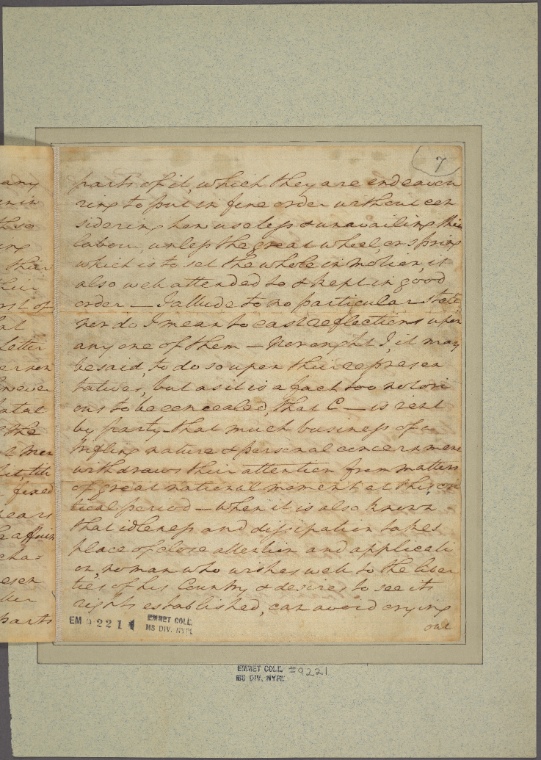 7
parts of it, which they are endeavou
ring to put in fine order without con
sidering how useless & unavailing this
labour, unless the great wheel, or spring
which is to set the whole in motion, is
also well attended to & kept in good
order — I allude to no particular State
nor do I mean to cast reflections upon
any one of them — Nor ought I, it may
be said, to do so upon their represen
tatives, but as it is a fact too notori
ous to be concealed, that C— is rent
by party — that much business of a
trifling nature & personal concernment
withdraws their attention from matters
of great national moment at this cri
tical period — When it is also known
that idleness and dissipation takes
place of close attention and applicati
on, no man who wishes well to the liber
ties of his Country & desires to see its
rights established, can avoid crying
out
any
these
ing
their
letter
the
fixed
parts
EM 9221
EMMET COLL.
MS DIV. NYPL
EMMET COLL. 9221
MS DIV. NYPL